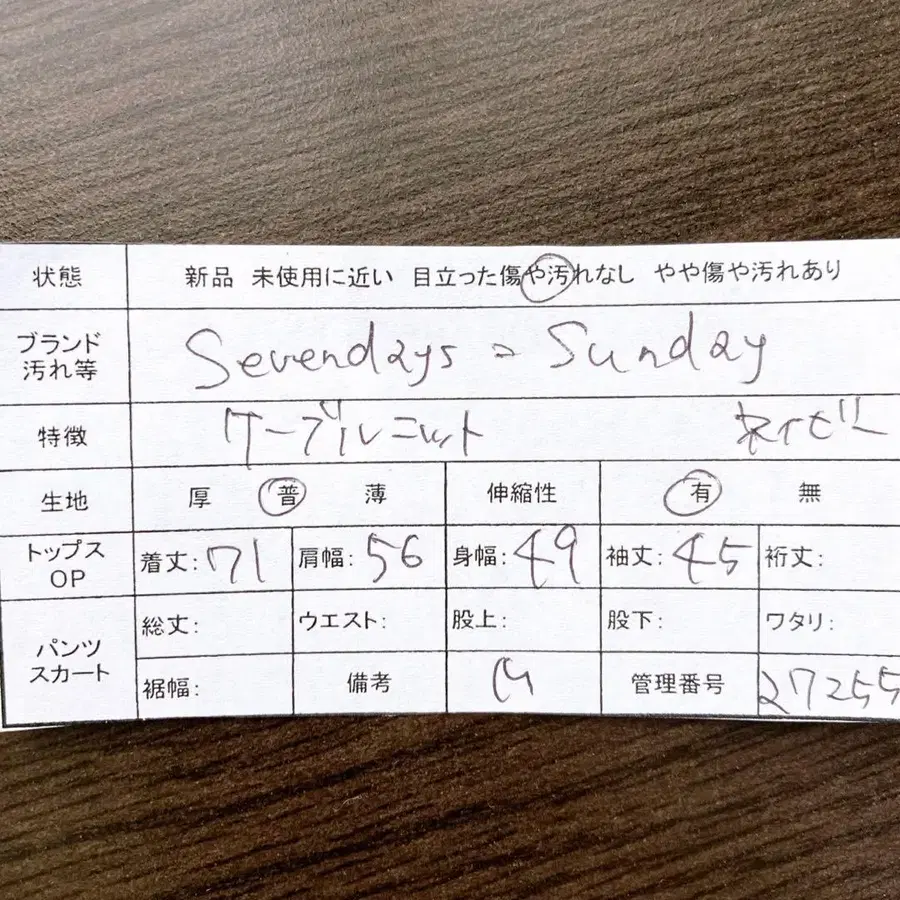 状態 新品 未使用に近い 目立った傷や汚れなし やや傷や汚れあり
ブランド
汚れ等 Sevendays = Sunday
特徴 ケーブルニット ネイビー
生地 厚 普 薄 伸縮性 有 無
トップス
OP 着丈: 71 肩幅: 56 身幅: 49 袖丈: 45 裄丈:
パンツ
スカート 総丈: ウエスト: 股上: 股下: ワタリ:
裾幅: 備考 管理番号 27255